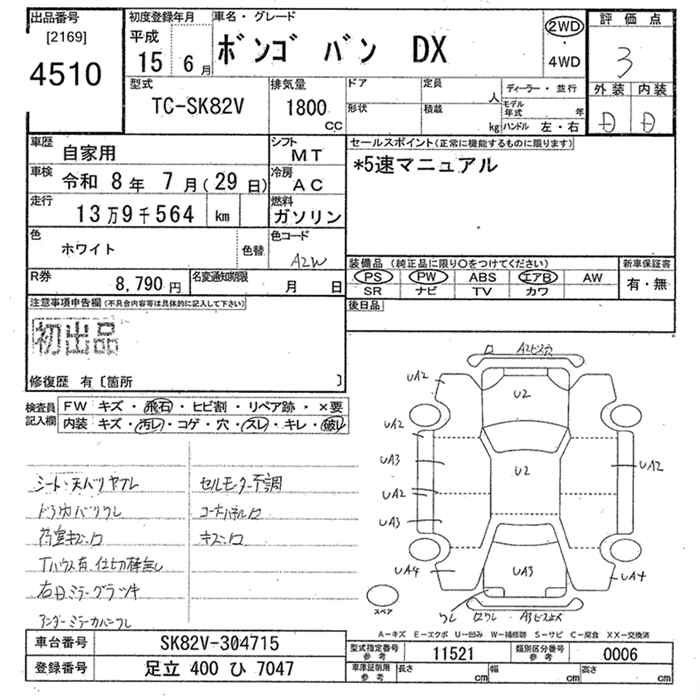 出品番号
[2169]
4510
初度登録年月
平成
15 6月
車名・グレード
ボンゴ バン DX
2WD
・
4WD
評価点
3
外装 内装
D D
型式
TC-SK82V
排気量
1800
CC
ドア
形状
定員
人
積載
kg
ディーラー・並行
モデル年式 年
ハンドル 左・右
車歴
自家用
シフト
MT
車検
令和 8年 7月(29日)
冷房
AC
走行
13万9千564 km
燃料
ガソリン
色
ホワイト
色替
色コード
A2W
R券
8,790円
名変通知期限
月 日
セールスポイント(正常に機能するものに限ります)
*5速マニュアル
装備品(純正品に限り○をつけてください)
PS PW ABS エアB AW
SR ナビ TV カワ
新車保証書
有・無
後日品
注意事項申告欄(不具合内容等は具体的に記入して下さい)
初出品
修復歴 有〔箇所 〕
検査員
記入欄
FW キズ・飛石・ヒビ割・リペア跡・×要
内装 キズ・汚レ・コゲ・穴・スレ・キレ・破レ
シート・天バリヤブレ
ドラ内バリワレ
荷室キズ・凹
Tハウス有、仕切棒無し
右日ミラーグラツキ
アンダーミラーカバーワレ
セルモーター不調
コーナーパネル凹
キズ・凹
UA2
UA2
UA3
UA2
UA3
UA4
U2
U2
UA3
UA2
UA4
ワレ
スペア
A-キズ E-エクボ U-凹み W-補修跡 S-サビ C-腐食 XX-交換済
車台番号
SK82V-304715
登録番号
足立 400 ひ 7047
型式指定番号
参考
11521
類別区分番号
参考
0006
車庫証明用
参考
長さ cm
幅 cm
高さ cm